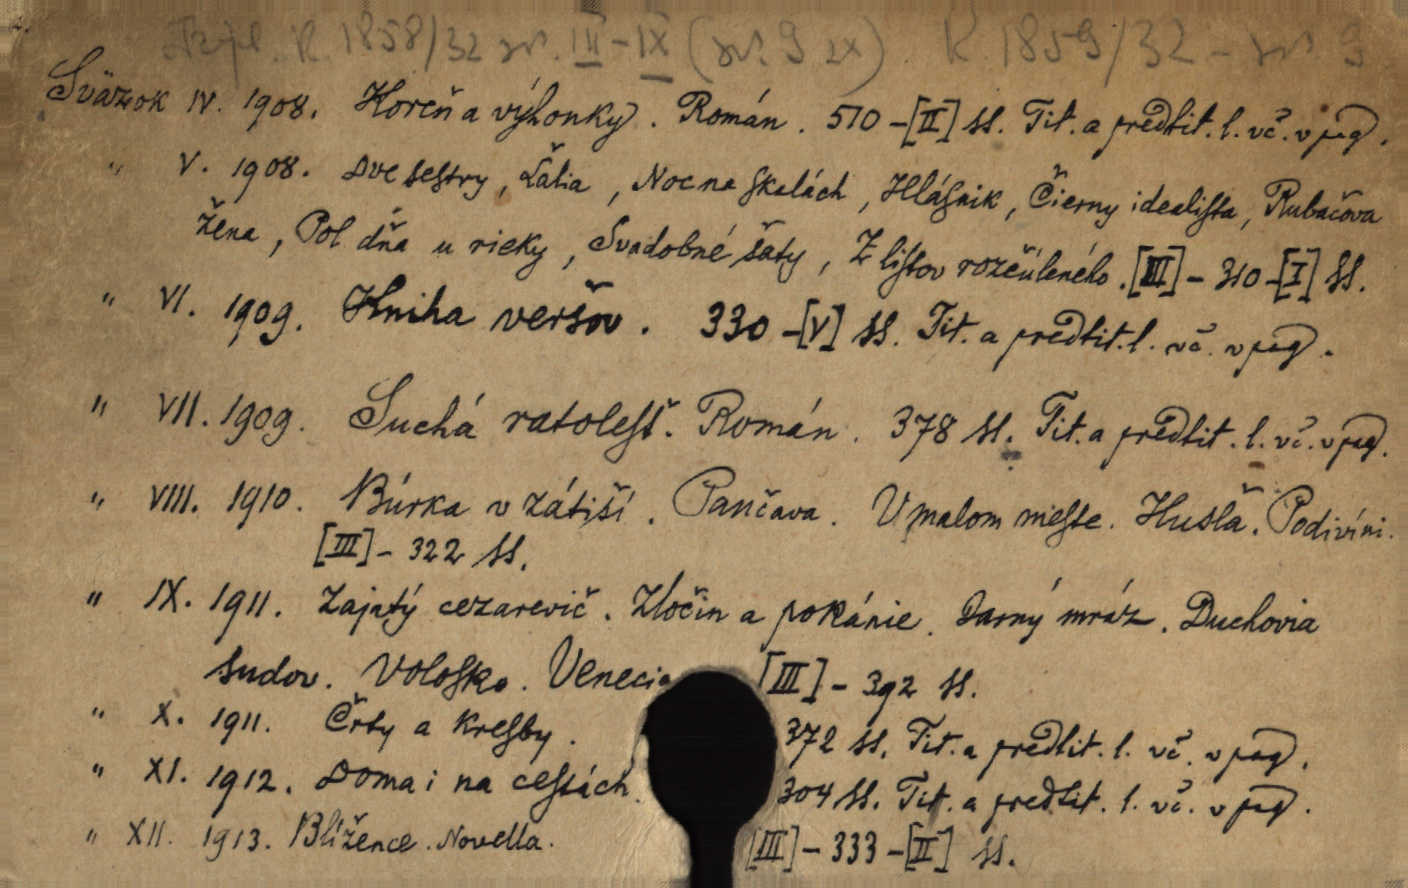 2.
K. 1858/32 zv. III-IX (zv. 9 2x). K. 1859/32 - zv. 9
Sväzok IV. 1908. Koreň a výhonky. Román. 510-[II] ss. Tit. a predtit. l. vč. v pag.
" V. 1908. Dve sestry, Ľália, Noc na skalách, Hlásnik, Čierny idealista, Rubačova
žena, Pol dňa u rieky, Svadobné šaty, Z listov rozčúleného. [III] - 310-[I] ss.
" VI. 1909. Kniha veršov. 330-[V] ss. Tit. a predtit. l. vč. v pag.
" VII. 1909. Suchá ratolesť. Román. 378 ss. Tit. a predtit. l. vč. v pag.
" VIII. 1910. Búrka v zátiší. Pančava. V malom meste. Husľa. Podivíni.
[III] - 322 ss.
" IX. 1911. Zajatý cezarevič. Zločin a pokánie. Darný mráz. Duchovia
sudov. Volosko. Venecia [III] - 392 ss.
" X. 1911. Črty a kresby. 372 ss. Tit. a predtit. l. vč. v pag.
" XI. 1912. Doma i na cestách. 304 ss. Tit. a predtit. l. vč. v pag.
" XII. 1913. Blížence. Novella. [III] - 333 - [II] ss.